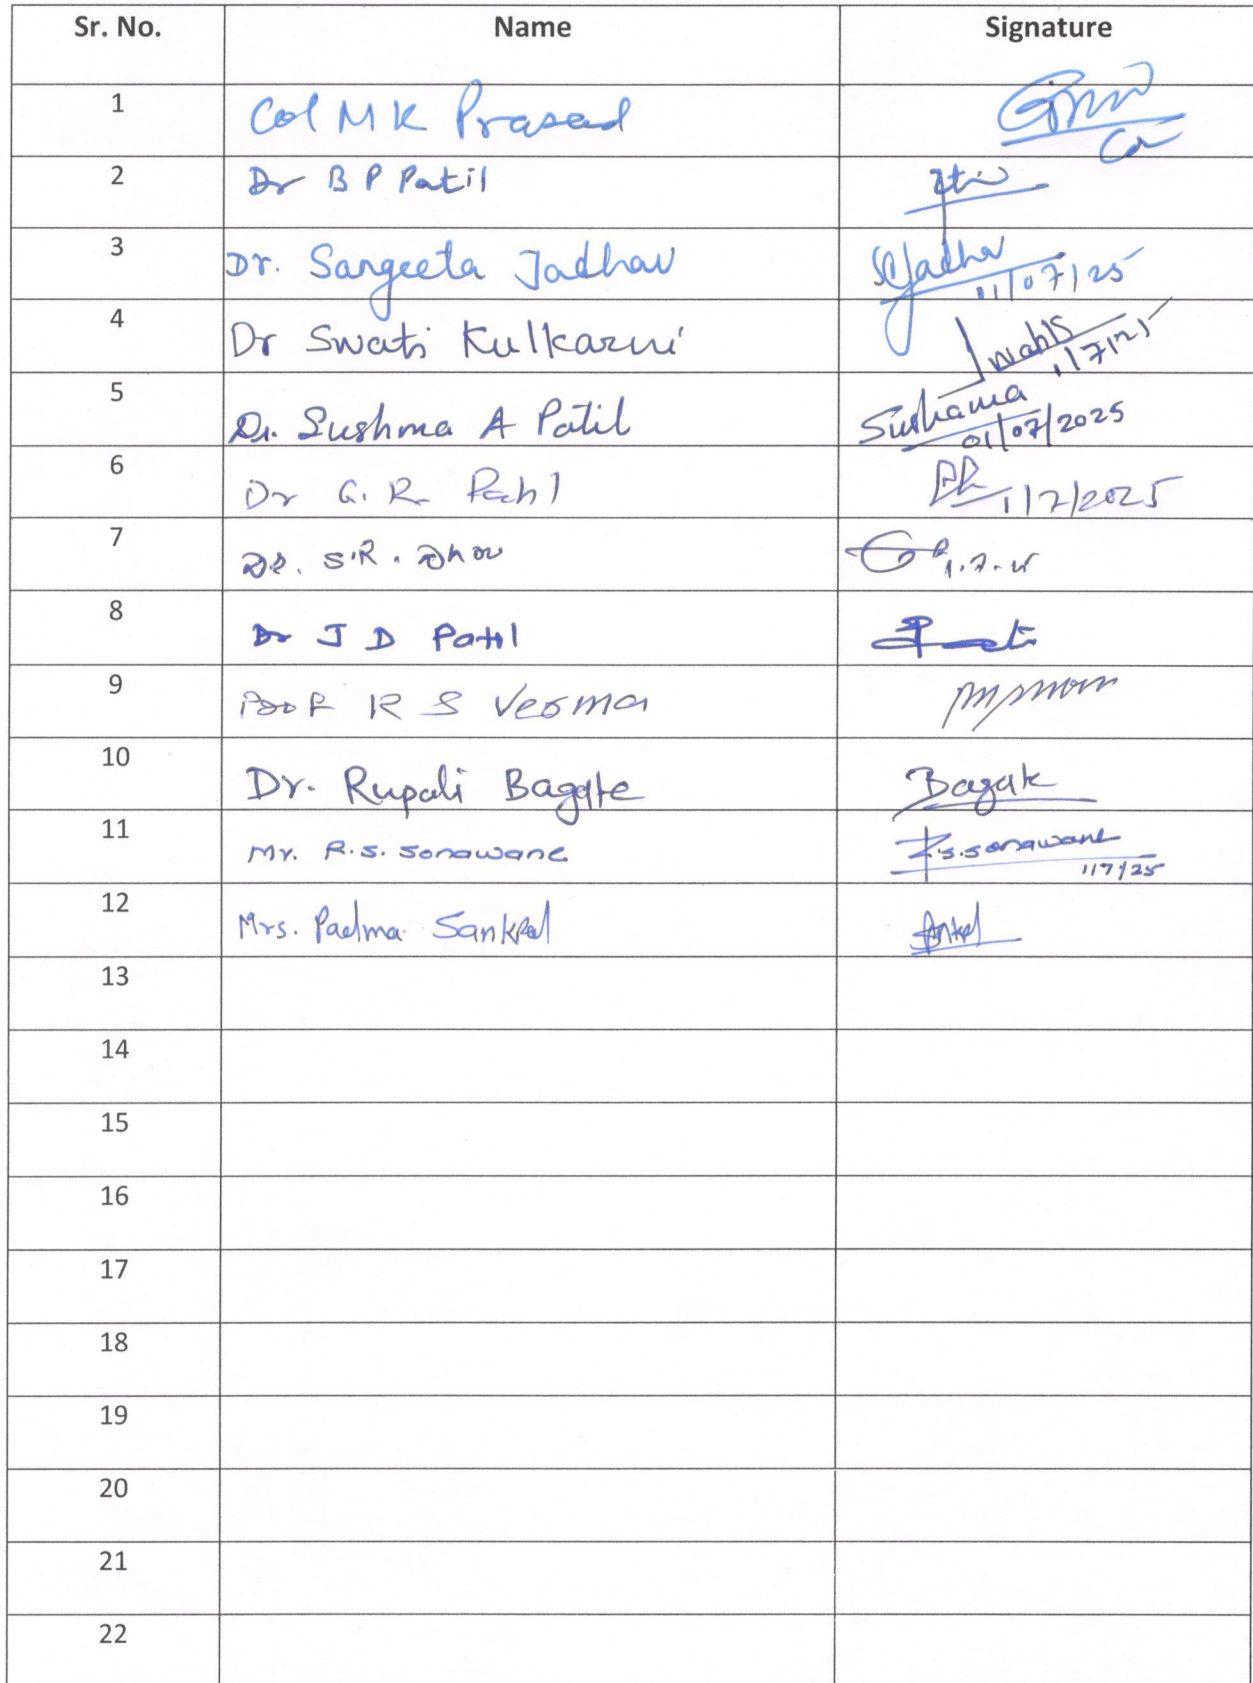 Sr. No. Name Signature
1 Col M K Prasad
2 Dr B P Patil
3 Dr. Sangeeta Jadhav SCJadhav 01/07/25
4 Dr Swati Kulkarni 1/7/25
5 Dr. Sushma A Patil Sushama 01/07/2025
6 Dr G. R. Patil 1/7/2025
7 Dr. S.R. Dhore
8 Dr J D Patil
9 Prof R S Verma
10 Dr. Rupali Bagate Bagate
11 Mr. R.S. Sonawane R.S.Sonawane 1/7/25
12 Mrs. Padma Sankpal
13
14
15
16
17
18
19
20
21
22